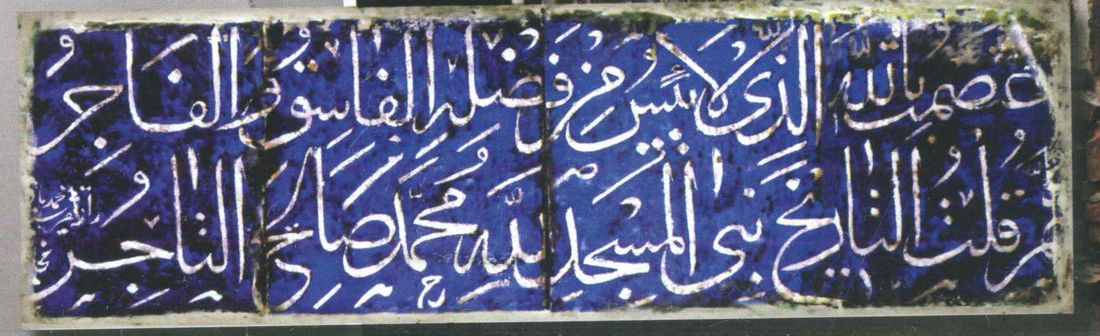 اعتصمت بالله الذي لا ييئس من فضله الفاسق والفاجر
ثم قلت التاريخ بنى المسجد لله محمد صالح التاجر